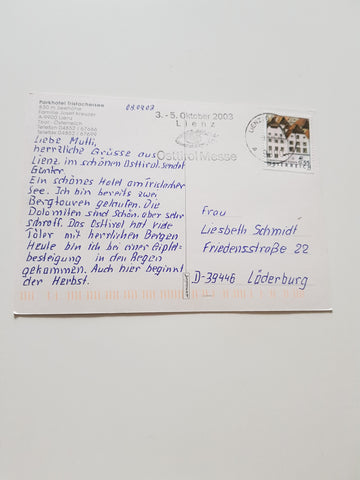 Parkhotel Tristachersee
830 m Seehöhe
Familie Josef Kreuzer
A-9900 Lienz
Tirol - Österreich
Telefon 04852 / 67666
Telefax 04852 / 67699
3. - 5. Oktober 2003
Lienz
Osttirol Messe
LIENZ
Liebe Mutti,
herzliche Grüsse aus
Lienz im schönen Osttirol sendet
Günter.
Ein schönes Hotel am Tristacher
See. Ich bin bereits zwei
Bergtouren gelaufen. Die
Dolomiten sind schön, aber sehr
schroff. Das Osttirol hat viele
Täler mit herrlichen Bergen
Heute bin ich bei einer Gipfel-
besteigung in den Regen
gekommen. Auch hier beginnt
der Herbst.
Frau
Liesbeth Schmidt
Friedensstraße 22
D-39446 Löderburg